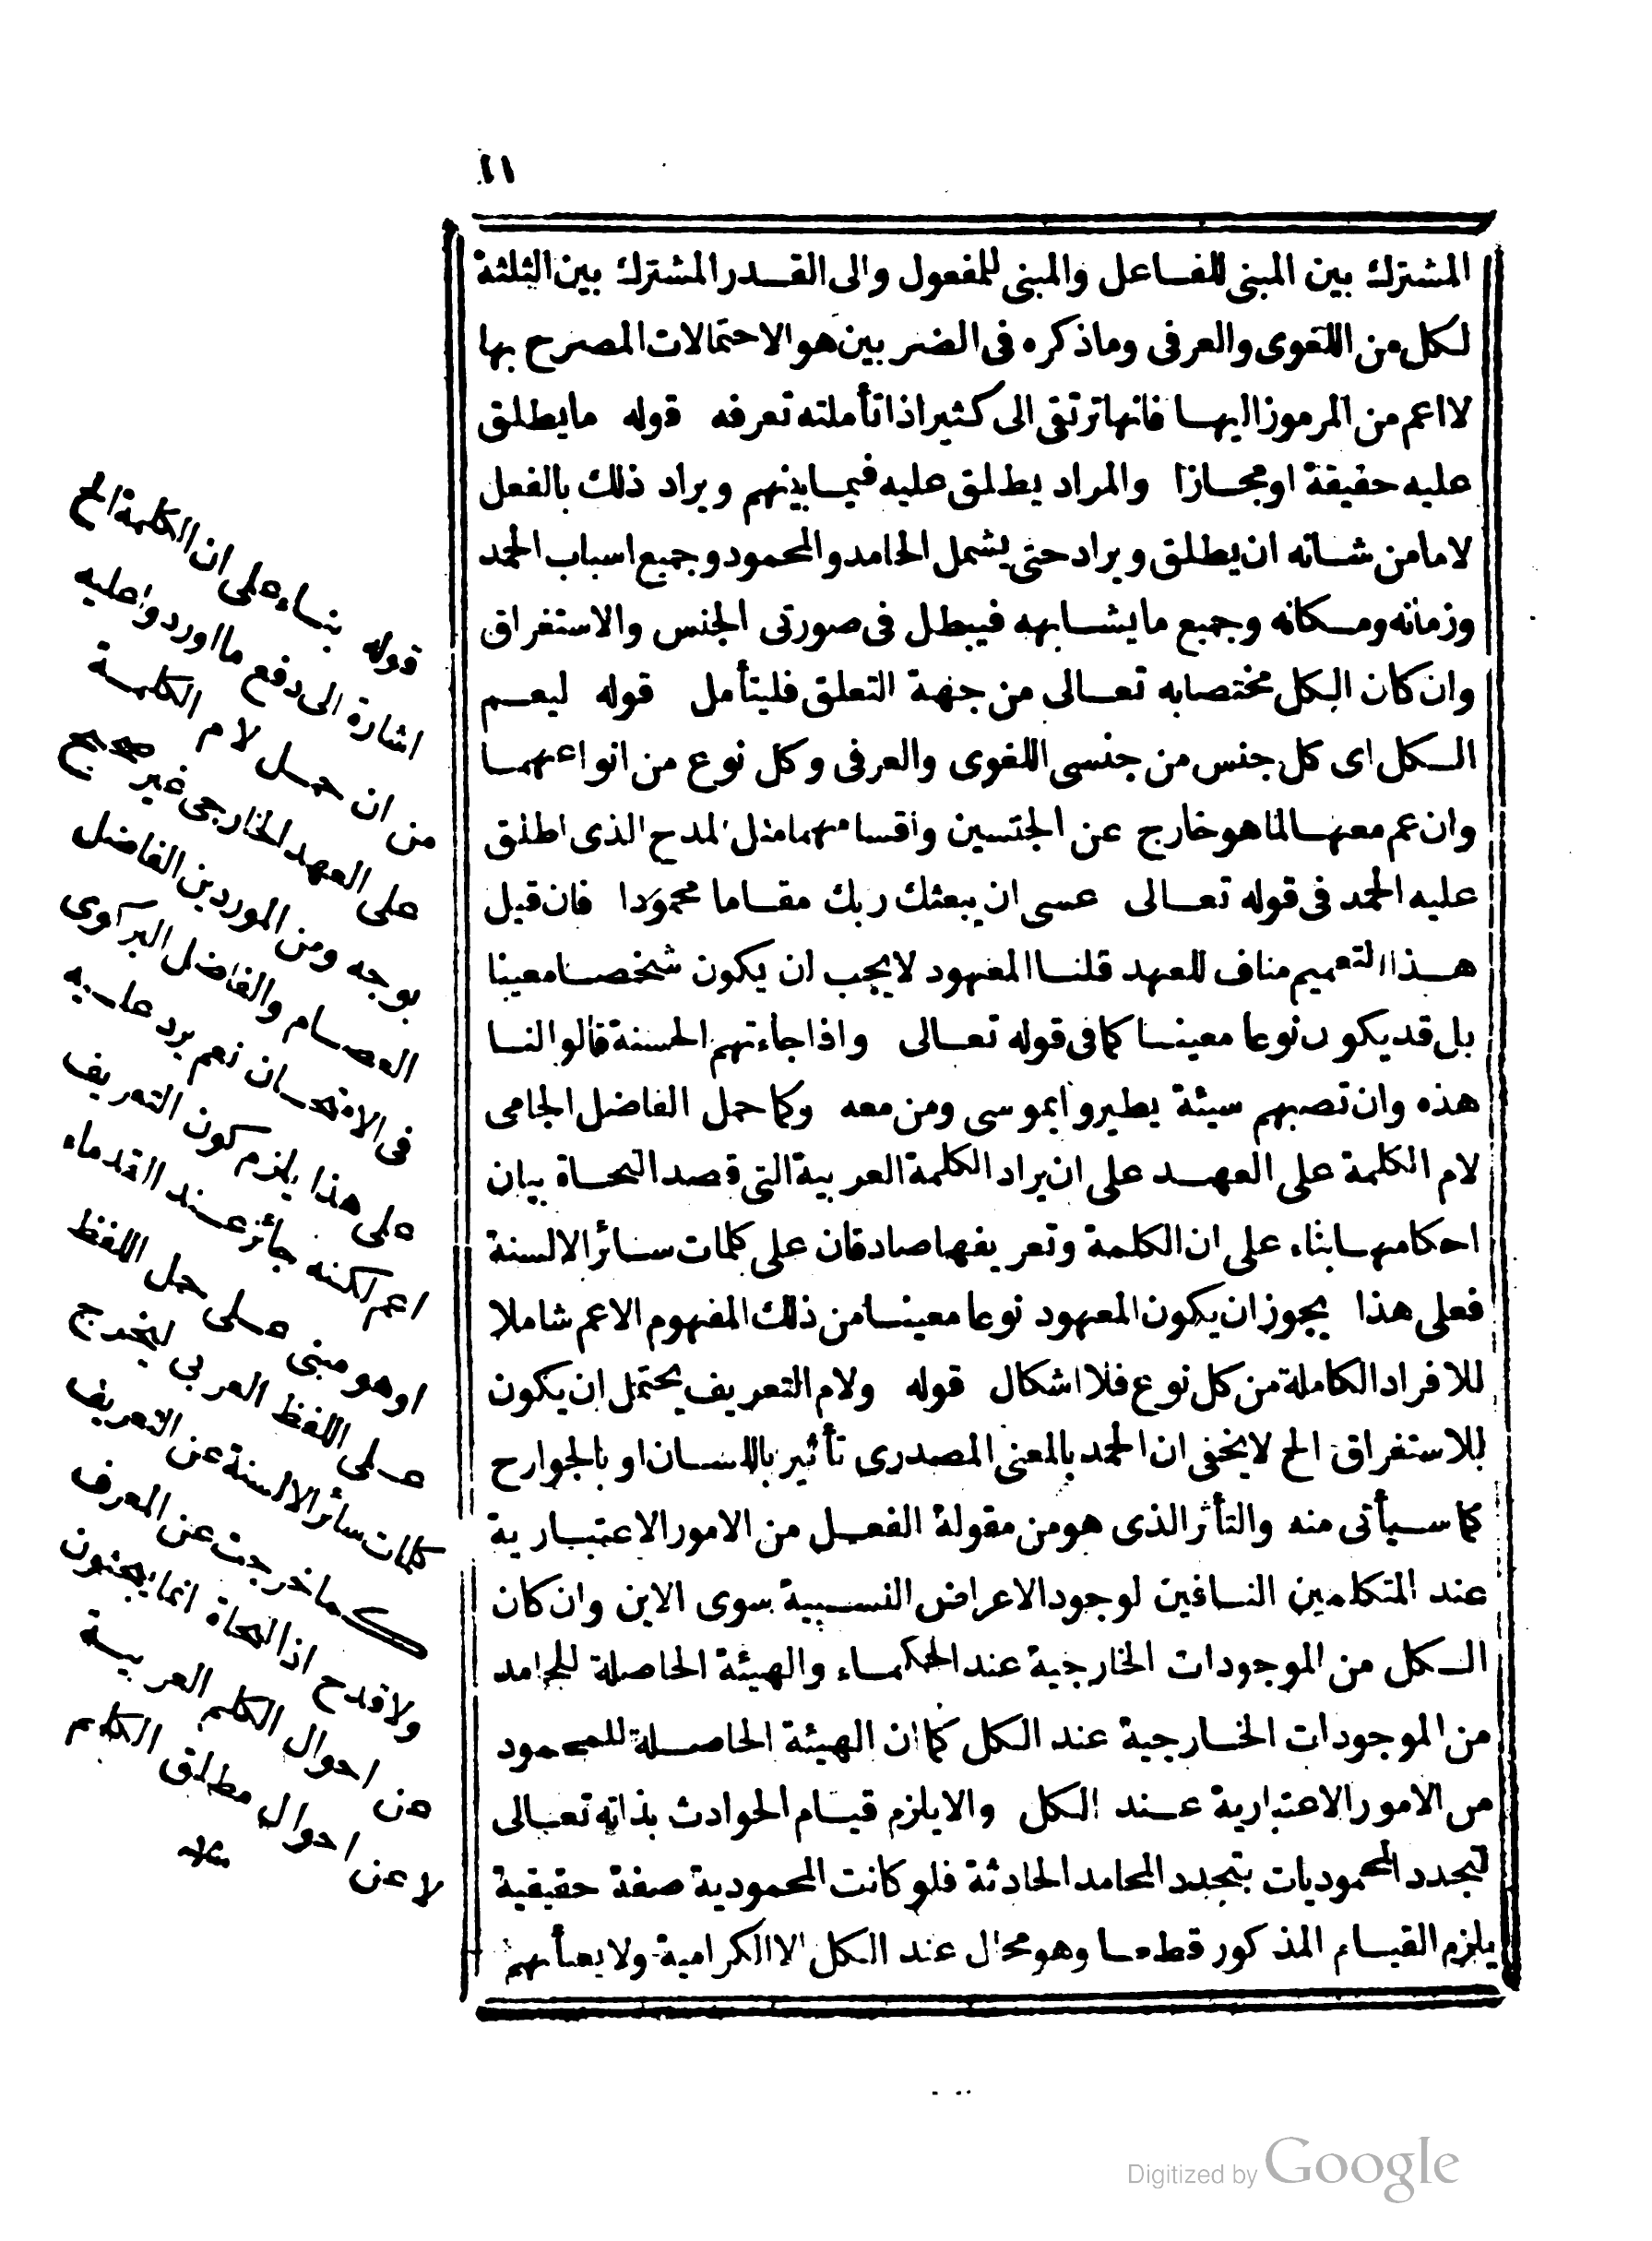 ١١
المشترك بين المبنى للفاعل والمبنى للمفعول والى القدر المشترك بين الثلثة
لكل من اللغوى والعرفى وما ذكره فى الضربين هو الاحتمالات المصرح بها
لا اعم من المرموز اليها فانها ترتقى الى كثير اذا تأملته تعرفه قوله ما يطلق
عليه حقيقة او مجازا والمراد يطلق عليه فيما بينهم ويراد ذلك بالفعل
لا ما من شانه ان يطلق ويراد حتى يشمل الحامد والمحمود وجميع اسباب الحمد
وزمانه ومكانه وجميع ما يشابهه فيبطل فى صورتى الجنس والاستغراق
وان كان الكل مختصا به تعالى من جهة التعلق فليتأمل قوله ليعم
الكل اى كل جنس من جنسى اللغوى والعرفى وكل نوع من انواعهما
وان عم معهما لما هو خارج عن الجنسين واقسامهما مثل المدح الذى اطلق
عليه الحمد فى قوله تعالى عسى ان يبعثك ربك مقاما محمودا فان قيل
هذا التعميم مناف للعهد قلنا المعهود لا يجب ان يكون شخصا معينا
بل قد يكون نوعا معينا كما فى قوله تعالى واذا جاءتهم الحسنة قالوا لنا
هذه وان تصبهم سيئة يطيروا بموسى ومن معه وكما حمل الفاضل الجامى
لام الكلمة على العهد على ان يراد الكلمة العربية التى قصد النحاة بيان
احكامها بناء على ان الكلمة وتعريفها صادقان على كلمات سائر الالسنة
فعلى هذا يجوز ان يكون المعهود نوعا معينا من ذلك المفهوم الاعم شاملا
للافراد الكاملة من كل نوع فلا اشكال قوله ولام التعريف يحتمل ان يكون
للاستغراق الخ لا يخفى ان الحمد بالمعنى المصدرى تأثير باللسان او بالجوارح
كما سيأتى منه والتأثر الذى هو من مقولة الفعل من الامور الاعتبارية
عند المتكلمين النافين لوجود الاعراض النسبية سوى الاين وان كان
الكل من الموجودات الخارجية عند الحكماء والهيئة الحاصلة للحامد
من الموجودات الخارجية عند الكل كما ان الهيئة الحاصلة للمحمود
من الامور الاعتبارية عند الكل والا يلزم قيام الحوادث بذاته تعالى
لتجدد المحموديات بتجدد المحامد الحادثة فلو كانت المحمودية صفة حقيقية
يلزم القيام المذكور قطعا وهو محال عند الكل الا الكرامية ولا يعبأ بهم
قوله بناء على ان الكلمة الخ
اشارة الى دفع ما اوردوا عليه
من ان حمل لام الكلمة
على العهد الخارجى غير صحيح
بوجه ومن الموردين الفاضل
العصام والفاضل البركوى
فى الامتحان نعم يرد عليه
على هذا يلزم كون التعريف
اعم لكنه جائز عند القدماء
او هو مبنى على حمل اللفظ
على اللفظ العربى ليخرج
كلمات سائر الالسنة عن التعريف
كما خرجت عن المعرف
ولا قدح اذ النحاة انما يبحثون
عن احوال الكلم العربية
لا عن احوال مطلق الكلام
منه
Digitized by Google